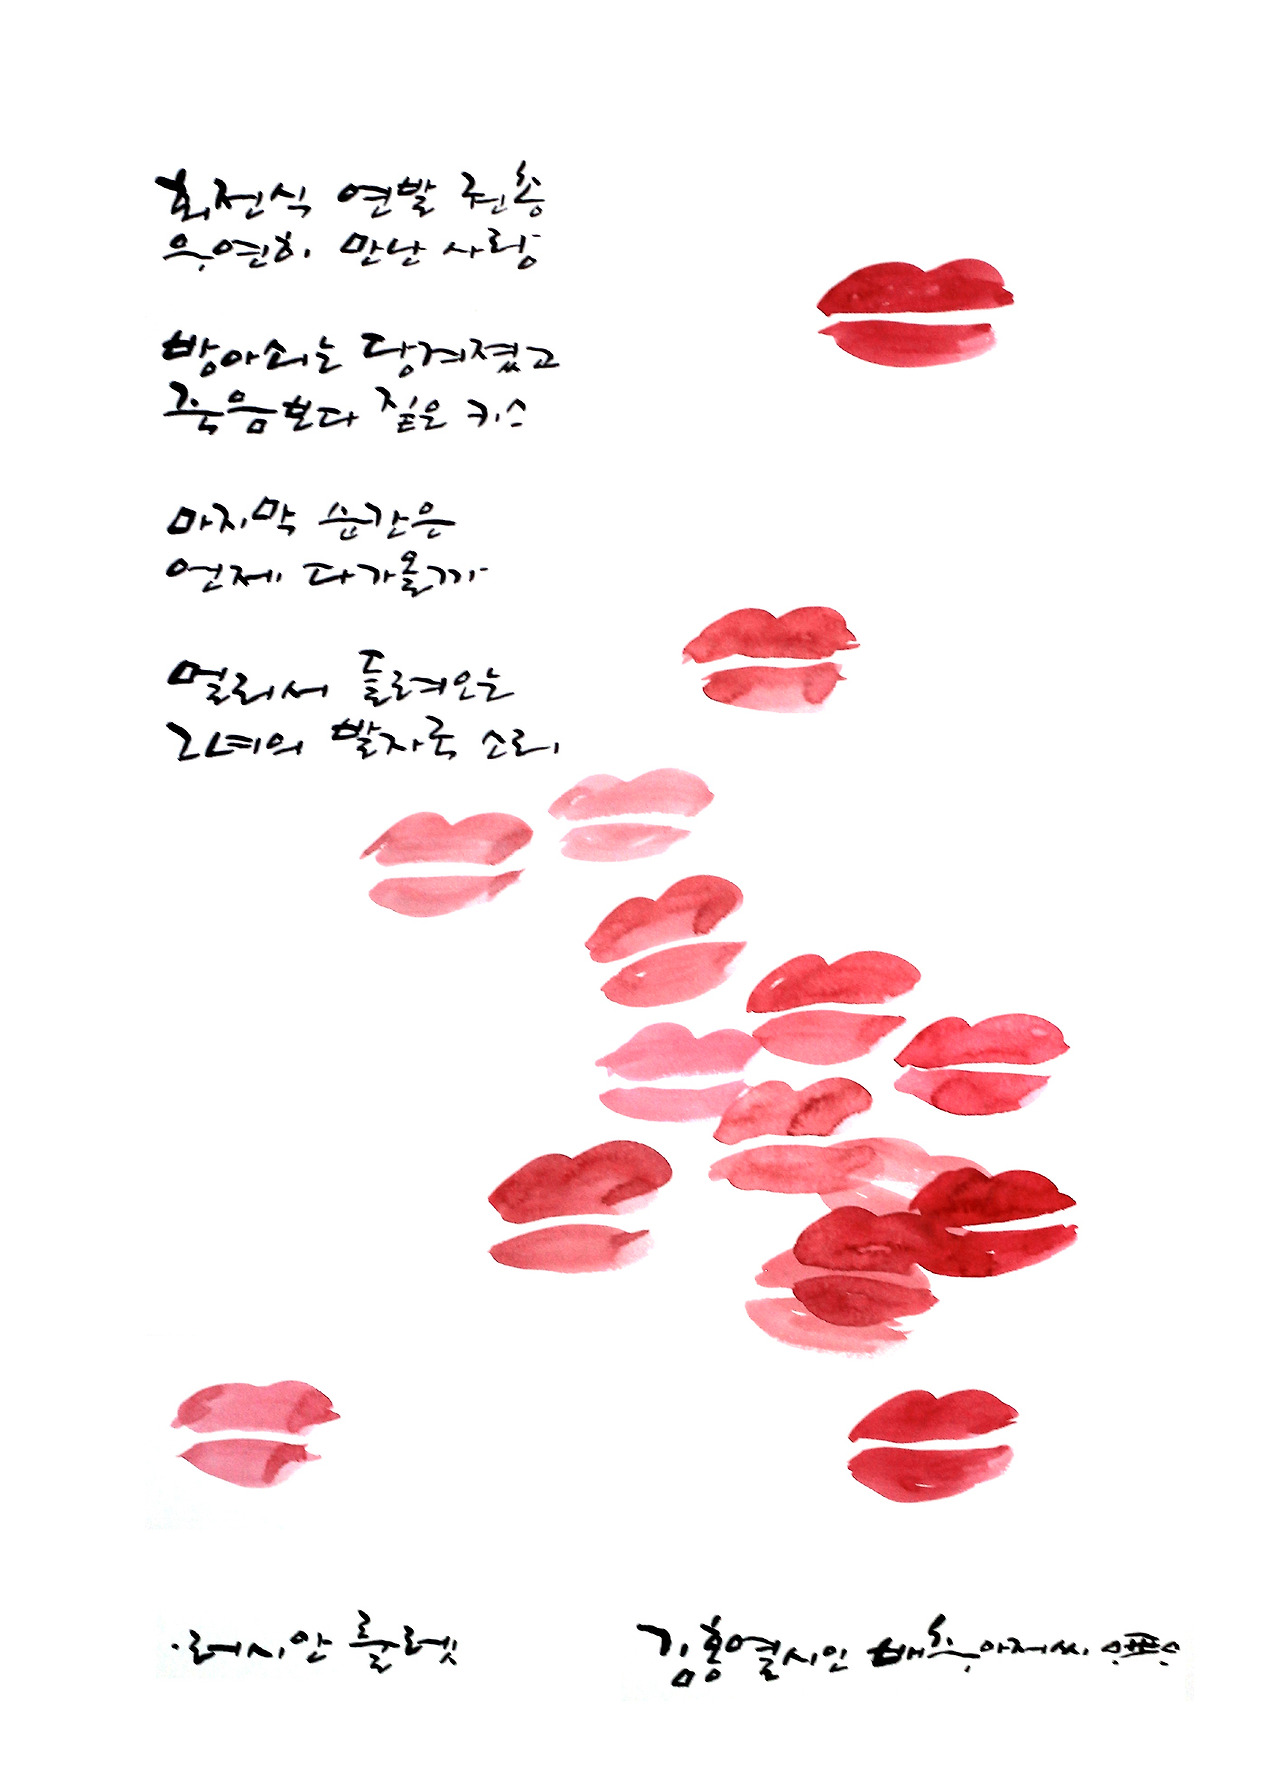 회전식 연발 권총
우연히 만난 사랑
방아쇠는 당겨졌고
죽음보다 짙은 키스
마지막 순간은
언제 다가올까
멀리서 들려오는
그녀의 발자국 소리
·러시안 룰렛
김홍열시인 배추아저씨